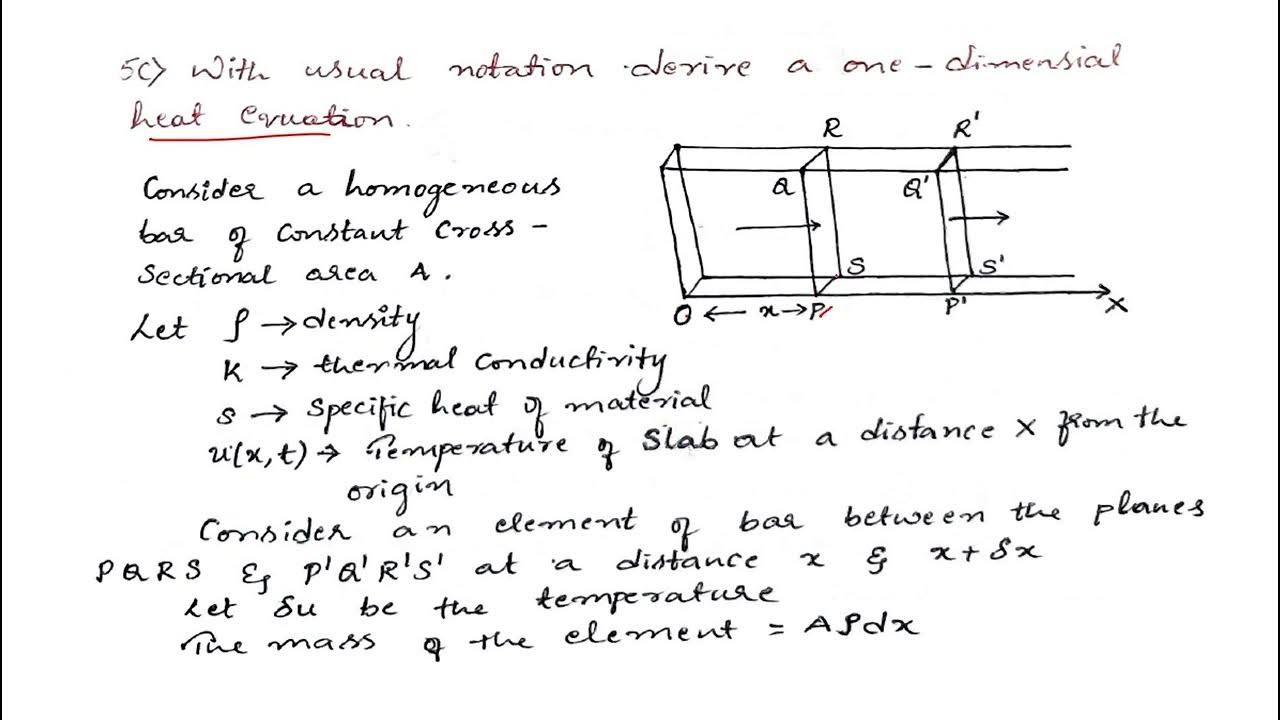 5C) With usual notation derive a one-dimensial
heat equation.
Consider a homogeneous
bar of constant cross-
sectional area A.
Let ρ → density
K → thermal conductivity
s → specific heat of material
u(x,t) → Temperature of Slab at a distance x from the
origin
R R'
Q Q'
S S'
O ← x → P P' X
Consider an element of bar between the planes
PQRS & P'Q'R'S' at a distance x & x+δx
Let δu be the temperature
The mass of the element = Aρdx